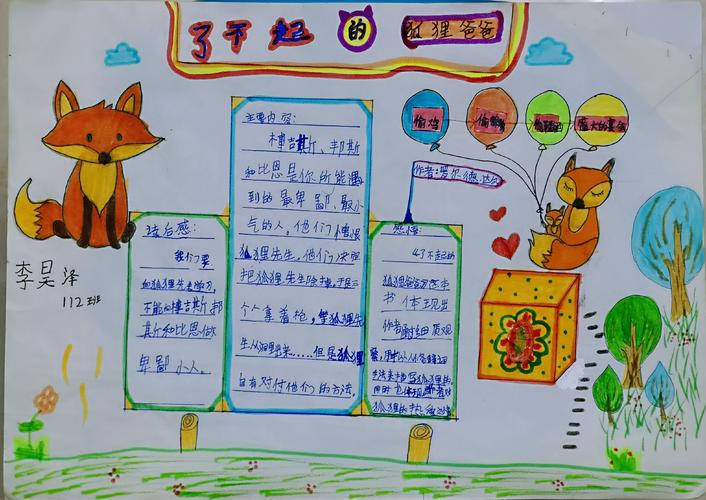 了不起的狐狸爸爸
偷鸡
偷鸭
盛大的宴会
作者:罗尔德·达尔
李昊泽
112班
读后感:
我们要
向狐狸先生学习,
不能向博吉斯邦
其斯和比恩做
卑鄙小人。
主要内容:
博吉斯、邦斯
和比恩是你所能遇
到的最卑鄙、最小
气的人,他们憎恨
狐狸先生。他们决定
把狐狸先生除掉,于是三
个个拿着枪,等狐狸先
生从洞里出来……但是狐狸
自有对付他们的方法。
感悟:
《了不起的
狐狸爸爸》这本
书体现出
作者